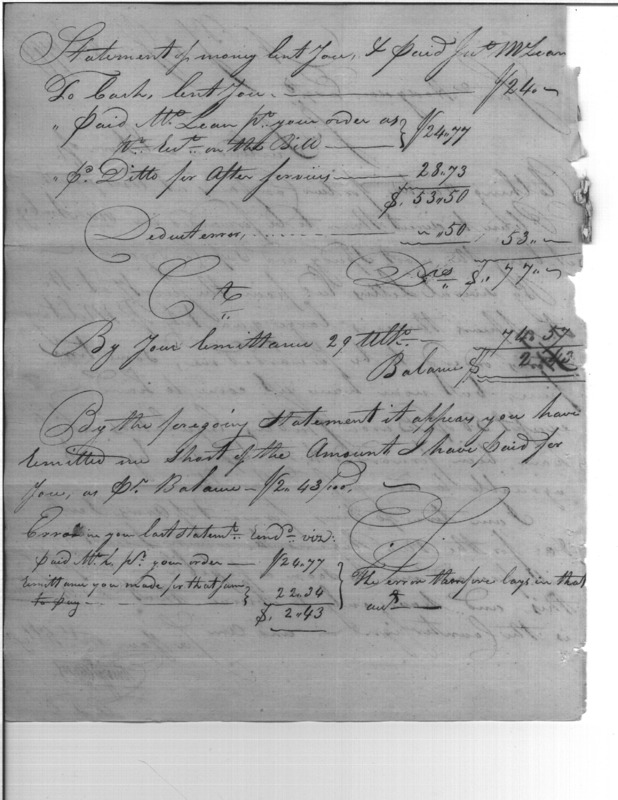 Statement of money lent You, & Paid Jno. McLean
To Cash, lent You $24.."
" Paid Mr. Lean pr. your order as } $24..77
pr. Rect. on the Bill
" Pd. Ditto for After services 28..73
$. 53..50
Deduct error, " ..50 53.."
Drs $. 77.."
Cr
By Your Remittance 29 Ulto. 74..57
Balance $ 2..43
By the foregoing Statement it appears you have
Remitted me Short of the Amount I have paid for
You, as Pr. Balance $2..43/100.
Error in your last statemt. viz:
Paid Mr. L. pr. your order $24..77
Remittance you made for that sum } 22..34
to pay
$. 2..43
The error therefore lays in that